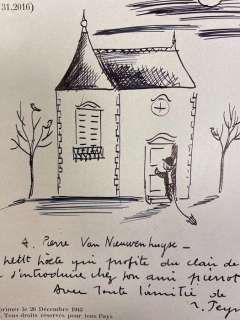 31.2016)
à Pierre Van Nieuwenhuyse -
petit poète qui profite du clair de
s'introduire chez son ami pierrot
Avec toute l'amitié de
primer le 26 Décembre 1942
Tous droits réservés pour tous Pays